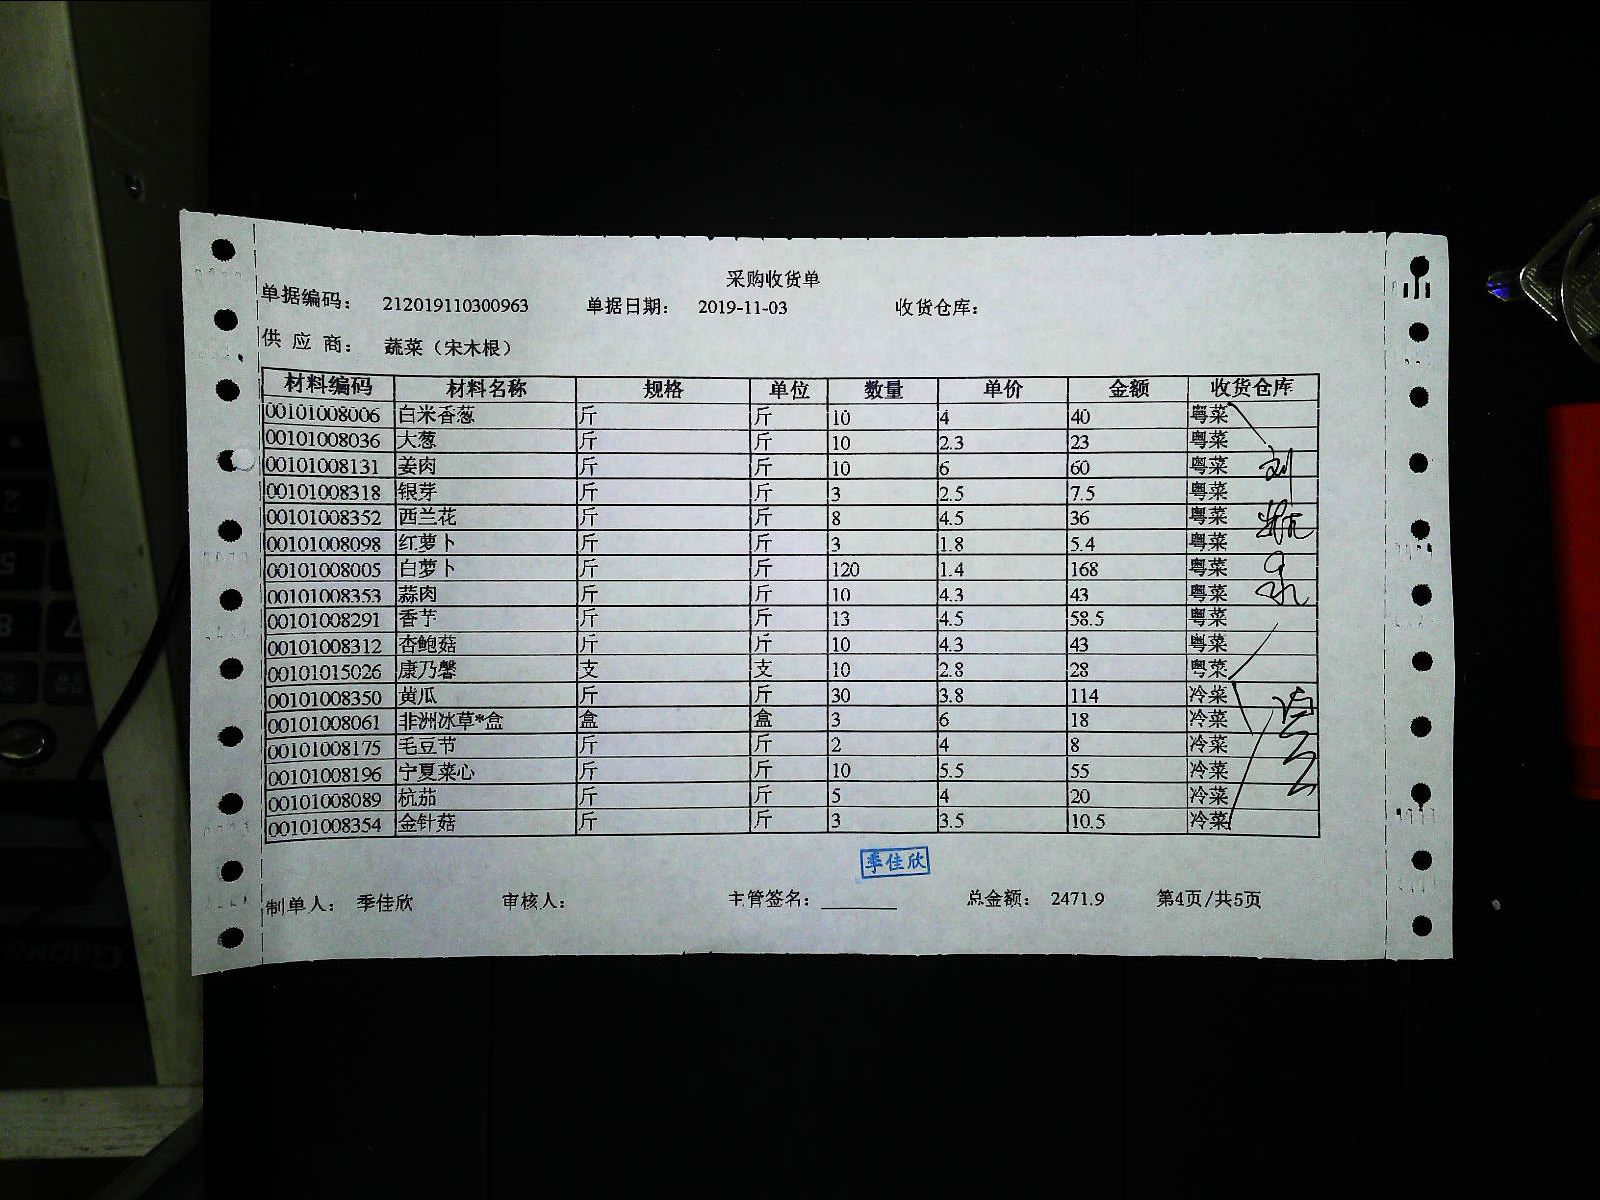 采购收货单
单据编码: 212019110300963 单据日期: 2019-11-03 收货仓库:
供应商: 蔬菜（宋木根）
材料编码 材料名称 规格 单位 数量 单价 金额 收货仓库
00101008006 白米香葱 斤 斤 10 4 40 粤菜
00101008036 大葱 斤 斤 10 2.3 23 粤菜
00101008131 姜肉 斤 斤 10 6 60 粤菜
00101008318 银芽 斤 斤 3 2.5 7.5 粤菜
00101008352 西兰花 斤 斤 8 4.5 36 粤菜
00101008098 红萝卜 斤 斤 3 1.8 5.4 粤菜
00101008005 白萝卜 斤 斤 120 1.4 168 粤菜
00101008353 蒜肉 斤 斤 10 4.3 43 粤菜
00101008291 香芋 斤 斤 13 4.5 58.5 粤菜
00101008312 杏鲍菇 斤 斤 10 4.3 43 粤菜
00101015026 康乃馨 支 支 10 2.8 28 粤菜
00101008350 黄瓜 斤 斤 30 3.8 114 冷菜
00101008061 非洲冰草*盒 盒 盒 3 6 18 冷菜
00101008175 毛豆节 斤 斤 2 4 8 冷菜
00101008196 宁夏菜心 斤 斤 10 5.5 55 冷菜
00101008089 杭茄 斤 斤 5 4 20 冷菜
00101008354 金针菇 斤 斤 3 3.5 10.5 冷菜
季佳欣
制单人: 季佳欣 审核人: 主管签名: 总金额: 2471.9 第4页/共5页